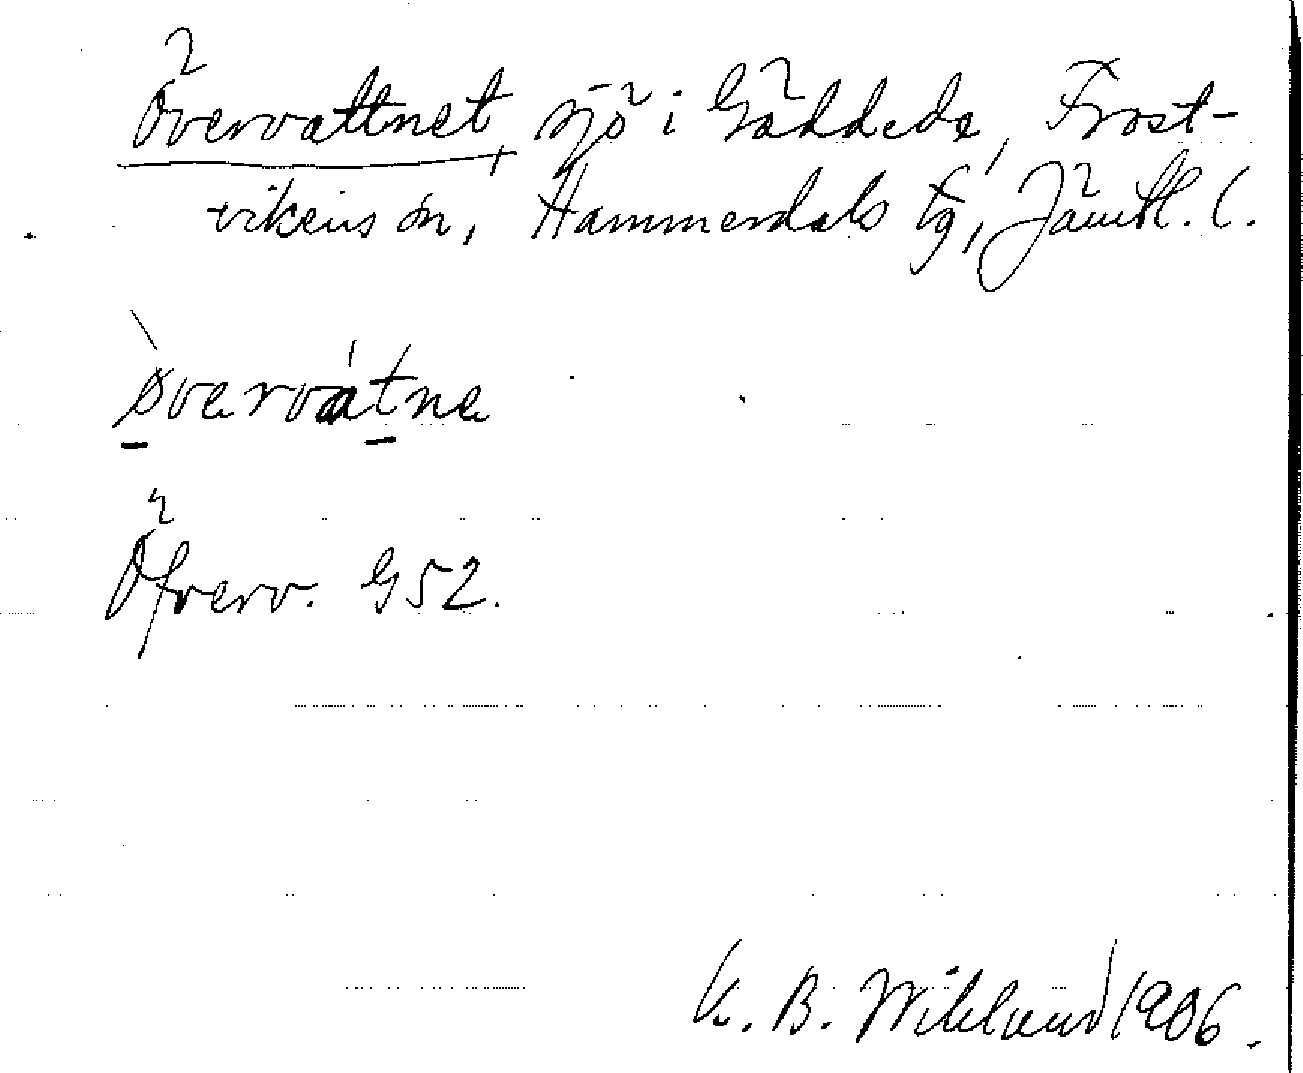 Övervattnet, sjö i Gäddede, Frost-
vikens sn, Hammerdals tg, Jämtl. l.
òvervátne
Öfverv. G52.
K. B. Wiklund 1906.